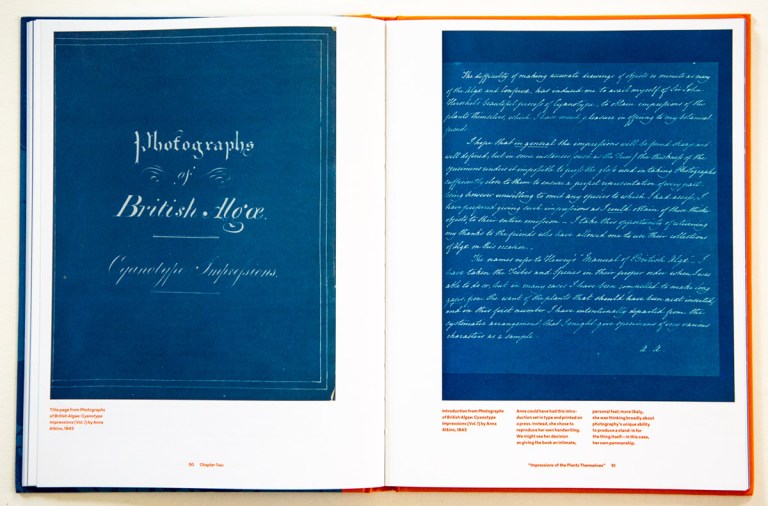 Photographs
of
British Algæ.
Cyanotype Impressions.
Title page from Photographs
of British Algae: Cyanotype
Impressions (Vol. 1) by Anna
Atkins, 1843
90 Chapter Two
The difficulty of making accurate drawings of objects as minute as many
of the Algæ and Confervæ, has induced me to avail myself of Sir John
Herschel's beautiful process of Cyanotype, to obtain impressions of the
plants themselves, which I have much pleasure in offering to my botanical
friends.
I hope that in general the impressions will be found sharp and
well defined, but in some instances (such as the Fuci) the thickness of the
specimens renders it impossible to press the glass used in taking Photographs
sufficiently close to them to ensure a perfect representation of every part.
Being however unwilling to omit any species to which I had access, I
have preferred giving such impressions as I could obtain of these thick
objects, to their entire omission. — I take this opportunity of returning
my thanks to the friends who have allowed me to use their collections
of Algæ on this occasion.
The names refer to Harvey's "Manual of British Algæ" — I
have taken the Tribes and Species in their proper order when I was
able to do so, but in many cases I have been compelled to make long
gaps, from the want of the plants that should have been next inserted,
and in this first number I have intentionally departed from the
systematic arrangement that I might give specimens of very various
characters as a sample.
A. A.
Introduction from Photographs
of British Algae: Cyanotype
Impressions (Vol. 1) by Anna
Atkins, 1843
Anna could have had this intro-
duction set in type and printed on
a press. Instead, she chose to
reproduce her own handwriting.
We might see her decision
as giving the book an intimate,
personal feel; more likely,
she was thinking broadly about
photography's unique ability
to produce a stand-in for
the thing itself—in this case,
her own penmanship.
"Impressions of the Plants Themselves" 91